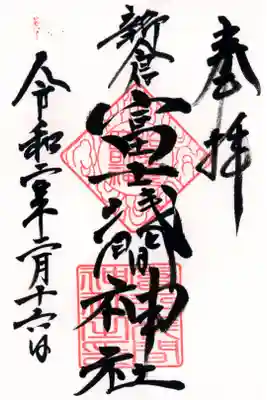 奉拝
新倉富士浅間神社
令和二年二月十六日